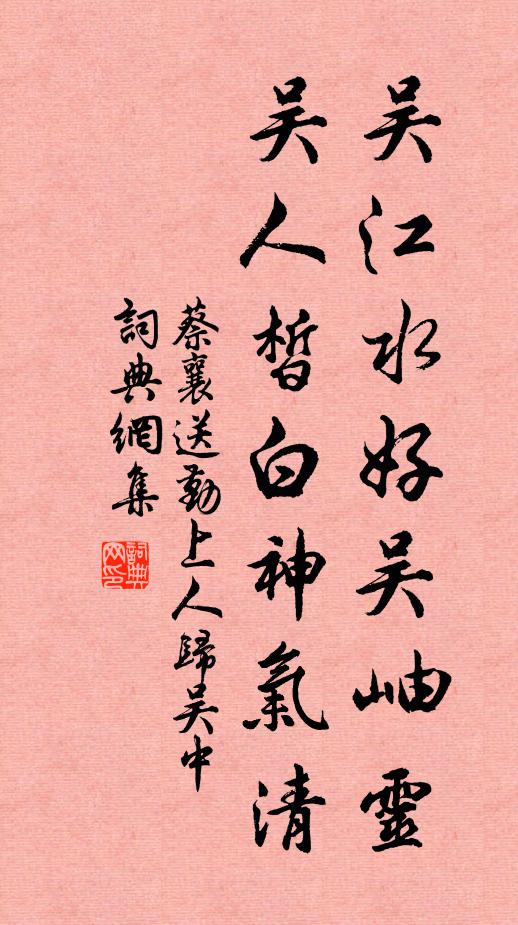 吴江水好吴岫靈
吴人皙白神氣清
蔡襄送勤上人歸吴中
詞典網集
詞典网印